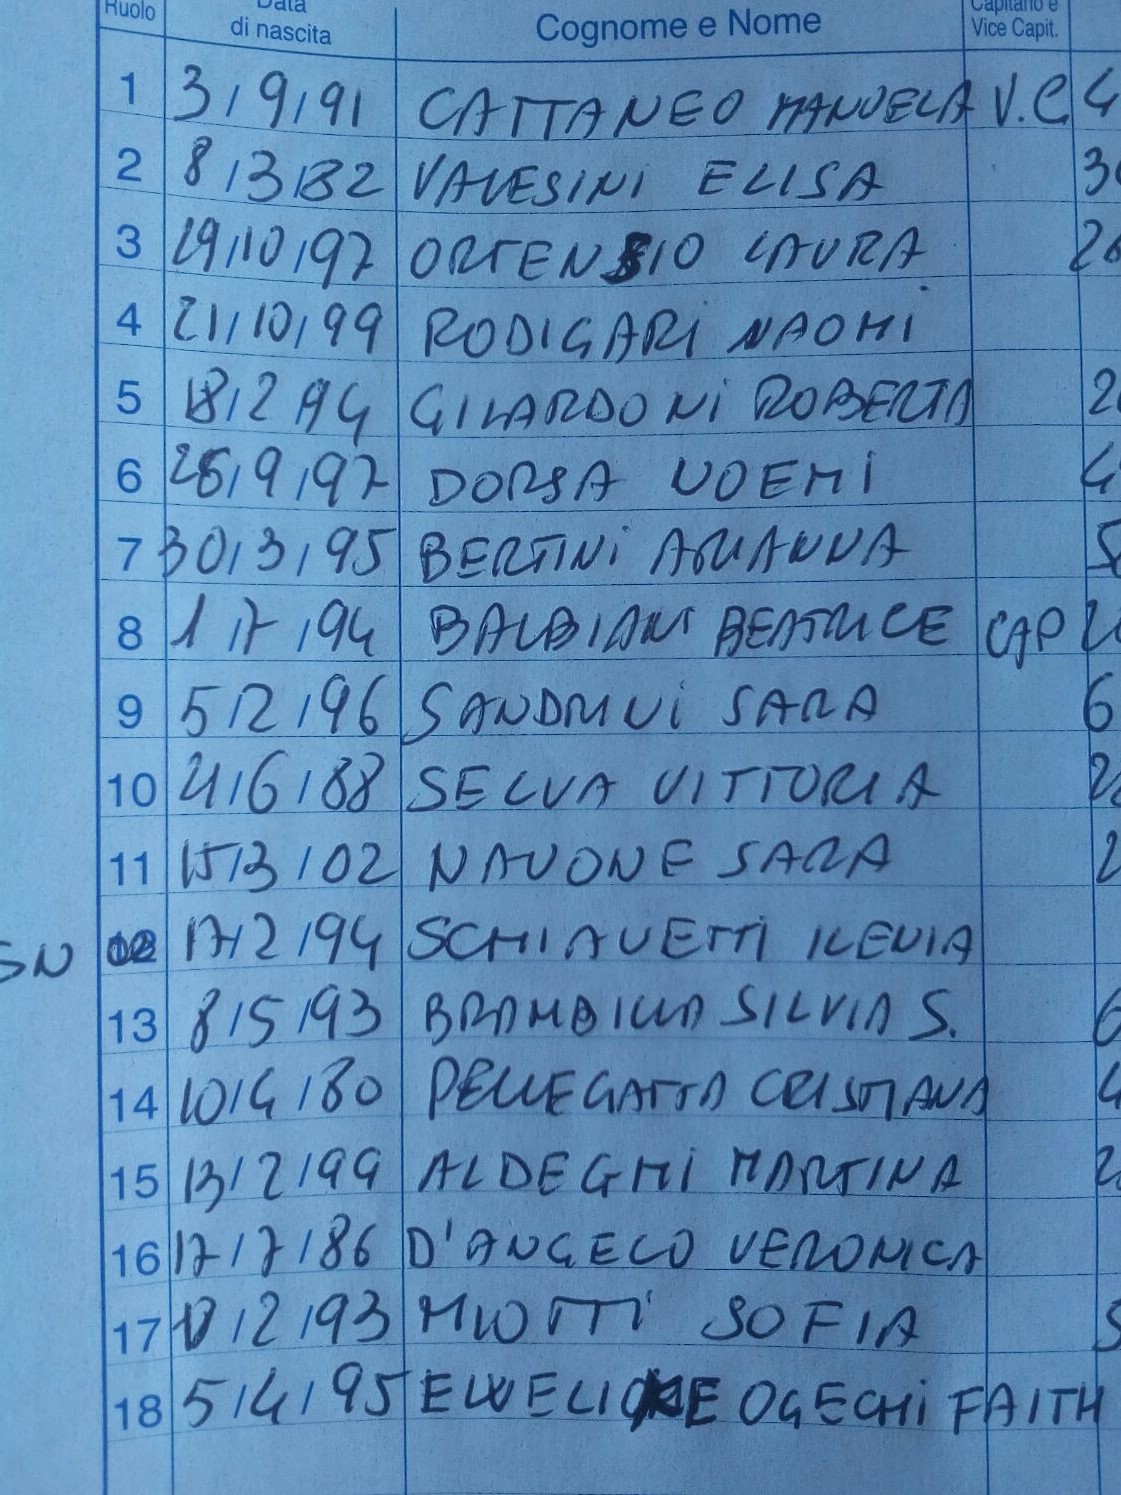 Ruolo Data di nascita Cognome e Nome Capitano e Vice Capit.
1 3/9/91 CATTANEO MANUELA V.C 4
2 8/3/82 VALESINI ELISA 3
3 29/10/97 ORTENSIO LAURA 26
4 21/10/99 RODIGARI NAOMI
5 18/2/94 GILARDONI ROBERTA 2
6 26/9/97 DORSA NOEMI 4
7 30/3/95 BERTINI ARIANNA 5
8 1/7/94 BALBIANI BEATRICE CAP 2
9 5/2/96 SANDRINI SARA 6
10 21/6/88 SELVA VITTORIA 2
11 15/3/02 NAVONE SARA 2
SN 12 17/2/94 SCHIAVETTI ILENIA
13 8/5/93 BRAMBILLA SILVIA S. 6
14 10/4/80 PELLEGATTA CRISTIANA 4
15 13/2/99 ALDEGHI MARTINA 2
16 17/7/86 D'ANGELO VERONICA
17 /2/93 MIOTTI SOFIA 5
18 5/4/95 OGECHI FAITH